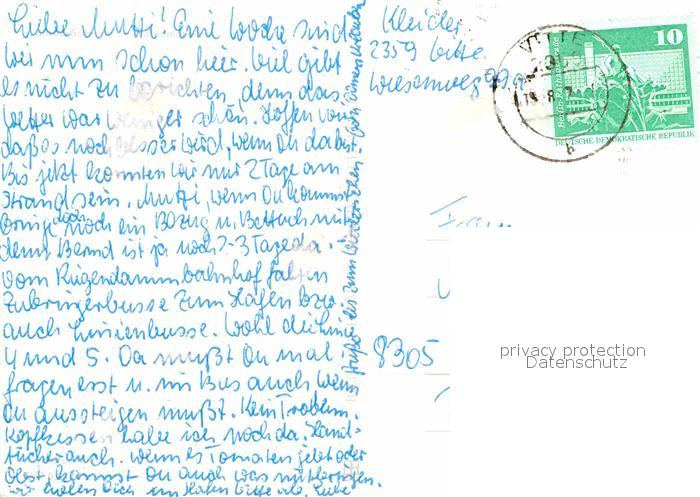 Liebe Mutti! Eine Woche sind
wir nun schon hier. Viel gibt
es nicht zu berichten, denn das
Wetter war weniger schön. Hoffen wir
daß es noch besser wird, wenn Du da bist.
Bis jetzt konnten wir nur 2 Tage am
Strand sein. Mutti, wenn Du kommst
bringe doch noch ein Bezug u. Bettuch mit
denn Bernd ist ja noch 2-3 Tage da.
Vom Rügendammbahnhof fahren
Zubringerbusse zum Hafen bzw.
auch Linienbusse. Wohl die Linie
4 und 5. Da mußt Du mal
fragen erst u. im Bus auch wenn
Du aussteigen mußt. Kein Problem.
Kopfkissen habe ich noch da. Hand-
tücher auch. Wenn es Tomaten gebt oder
Obst, kannst Du auch was mitbringen.
wir holen Dich am Hafen bitte ab. Liebe
Grüße bis zum Wiedersehen
2359
Wiesenweg 99a
10
Berlin
DEUTSCHE DEMOKRATISCHE REPUBLIK
VITTE
Frau
8305
privacy protection
Datenschutz